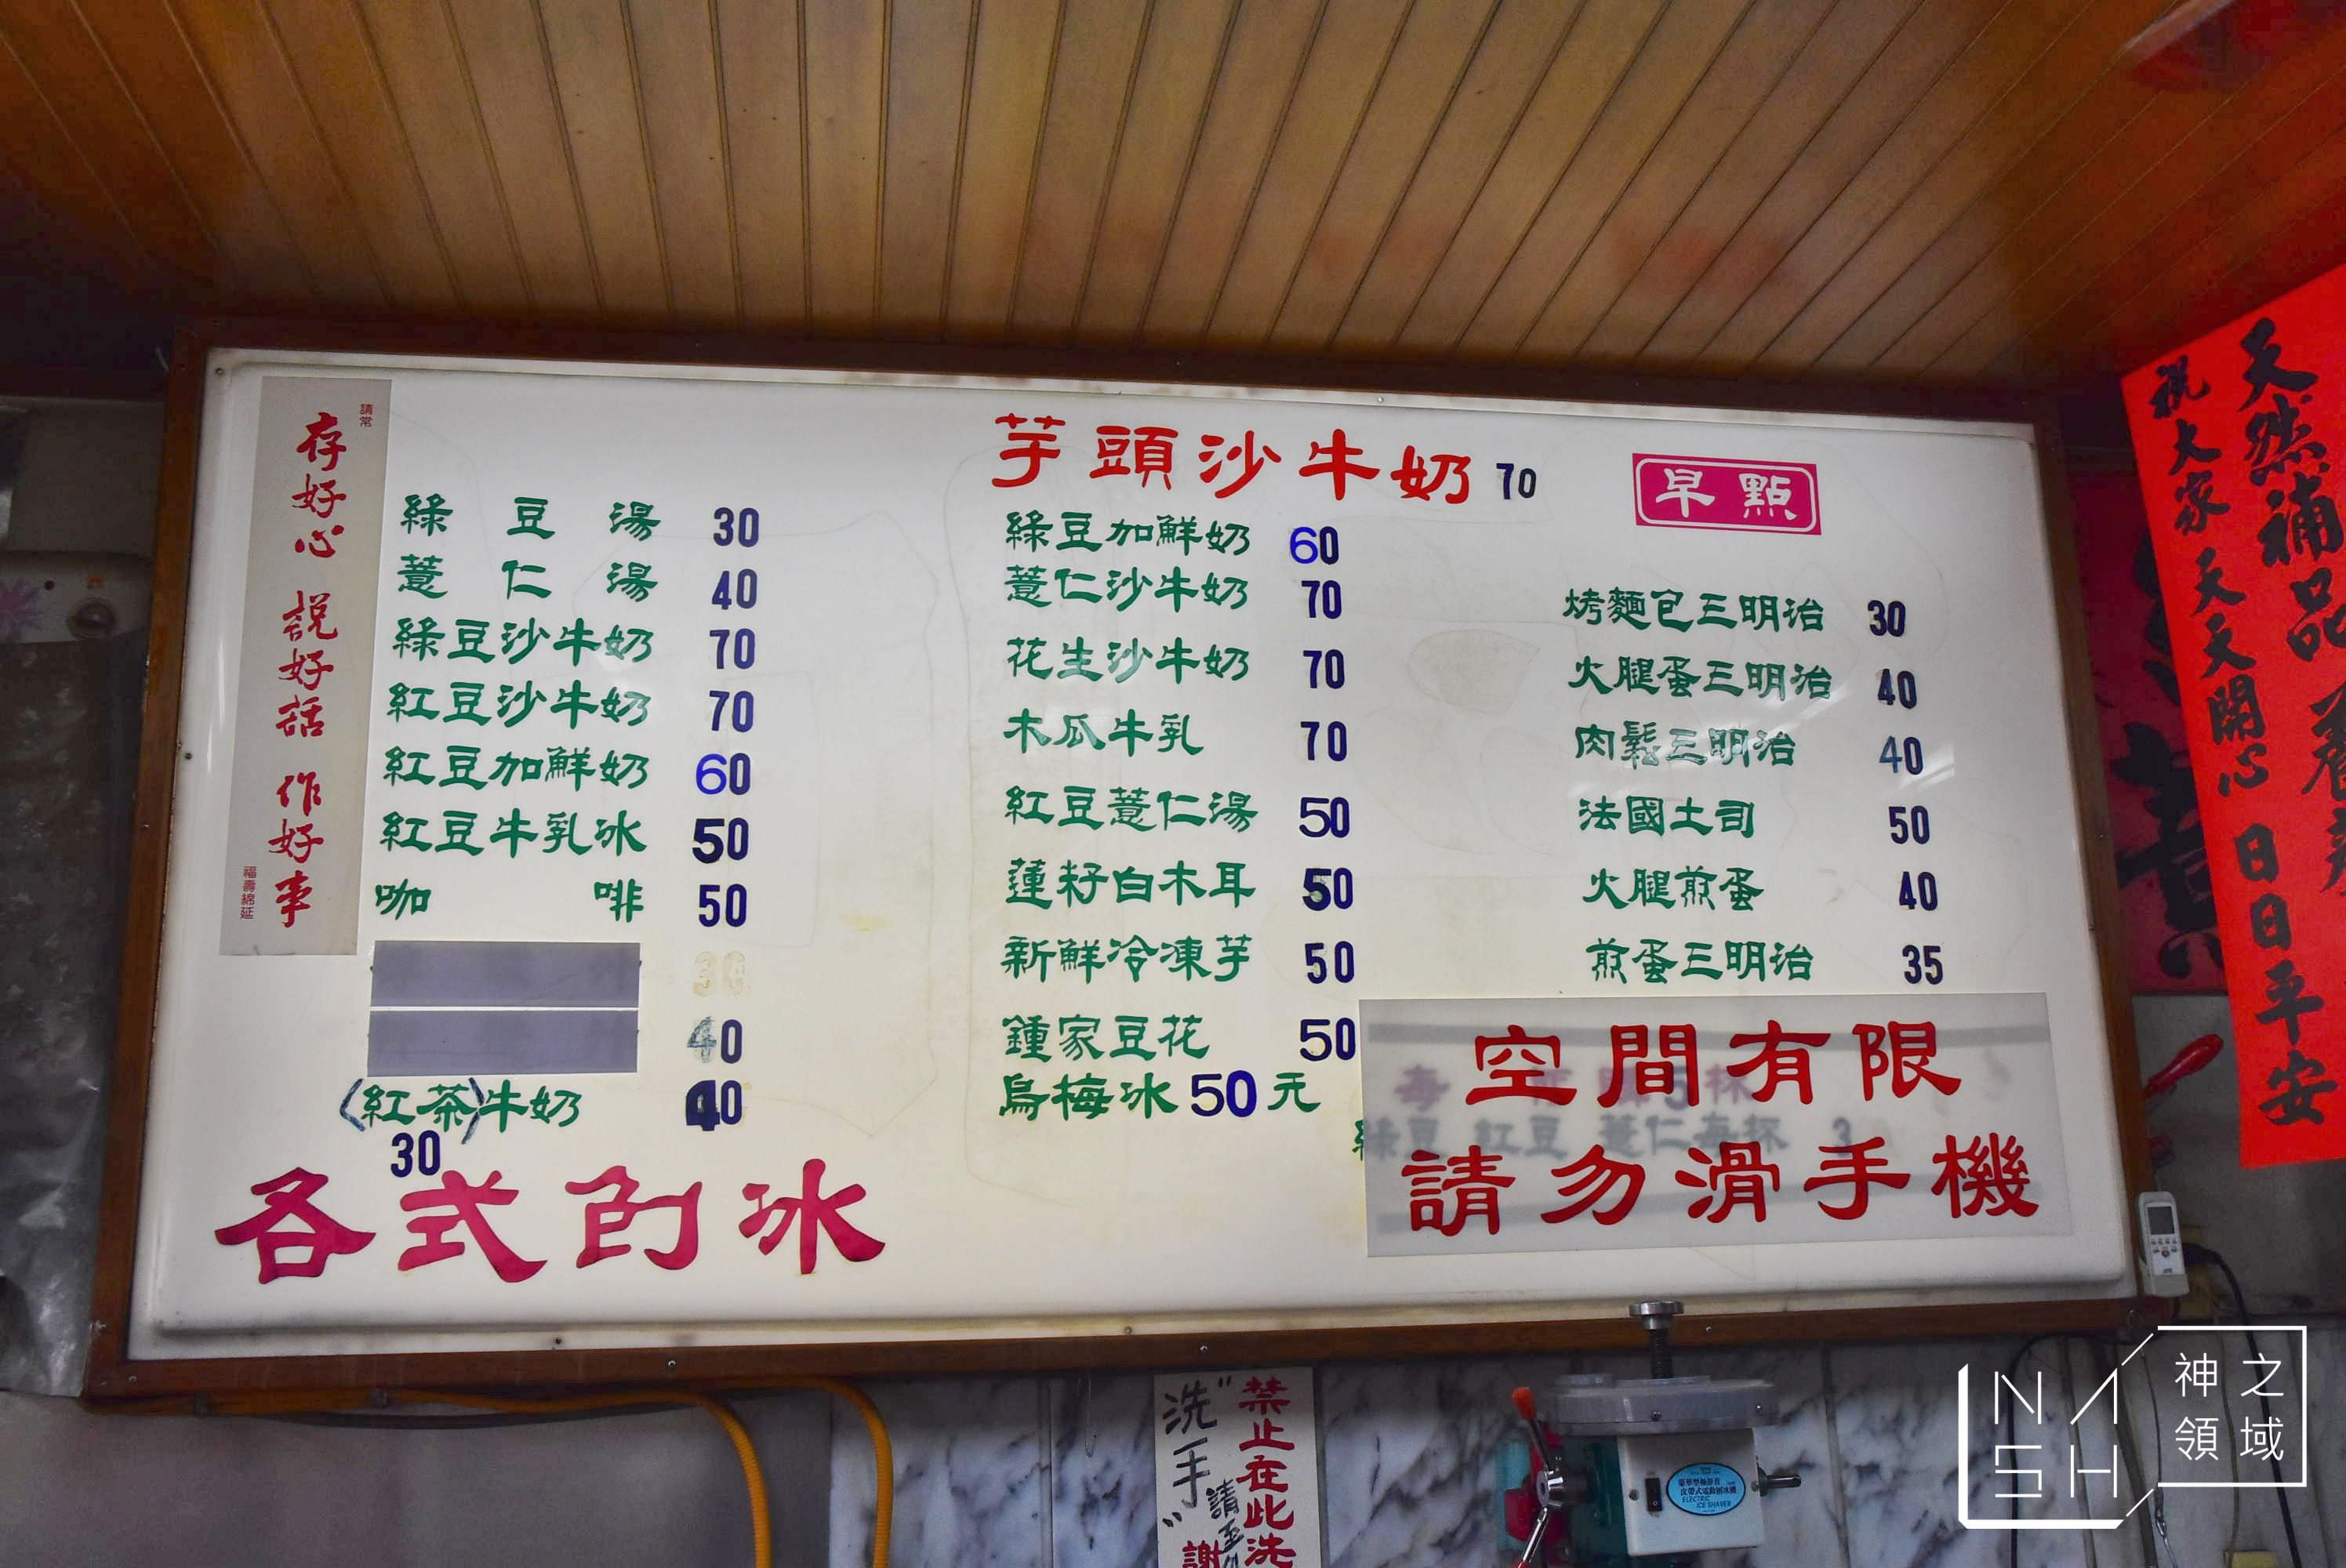 請常
存好心 說好話 作好事
福壽綿延
綠豆湯 30
薏仁湯 40
綠豆沙牛奶 70
紅豆沙牛奶 70
紅豆加鮮奶 60
紅豆牛乳冰 50
咖啡 50
30
40
(紅茶)牛奶 40
30
各式刨冰
芋頭沙牛奶 70
綠豆加鮮奶 60
薏仁沙牛奶 70
花生沙牛奶 70
木瓜牛乳 70
紅豆薏仁湯 50
蓮籽白木耳 50
新鮮冷凍芋 50
鍾家豆花 50
烏梅冰50元
早點
烤麵包三明治 30
火腿蛋三明治 40
肉鬆三明治 40
法國土司 50
火腿煎蛋 40
煎蛋三明治 35
空間有限
請勿滑手機
天然補品
祝大家天天開心日日平安
禁止在此洗
"洗手"
請至
謝
ELECTRIC
ICE SHAVER
NASH
神之領域